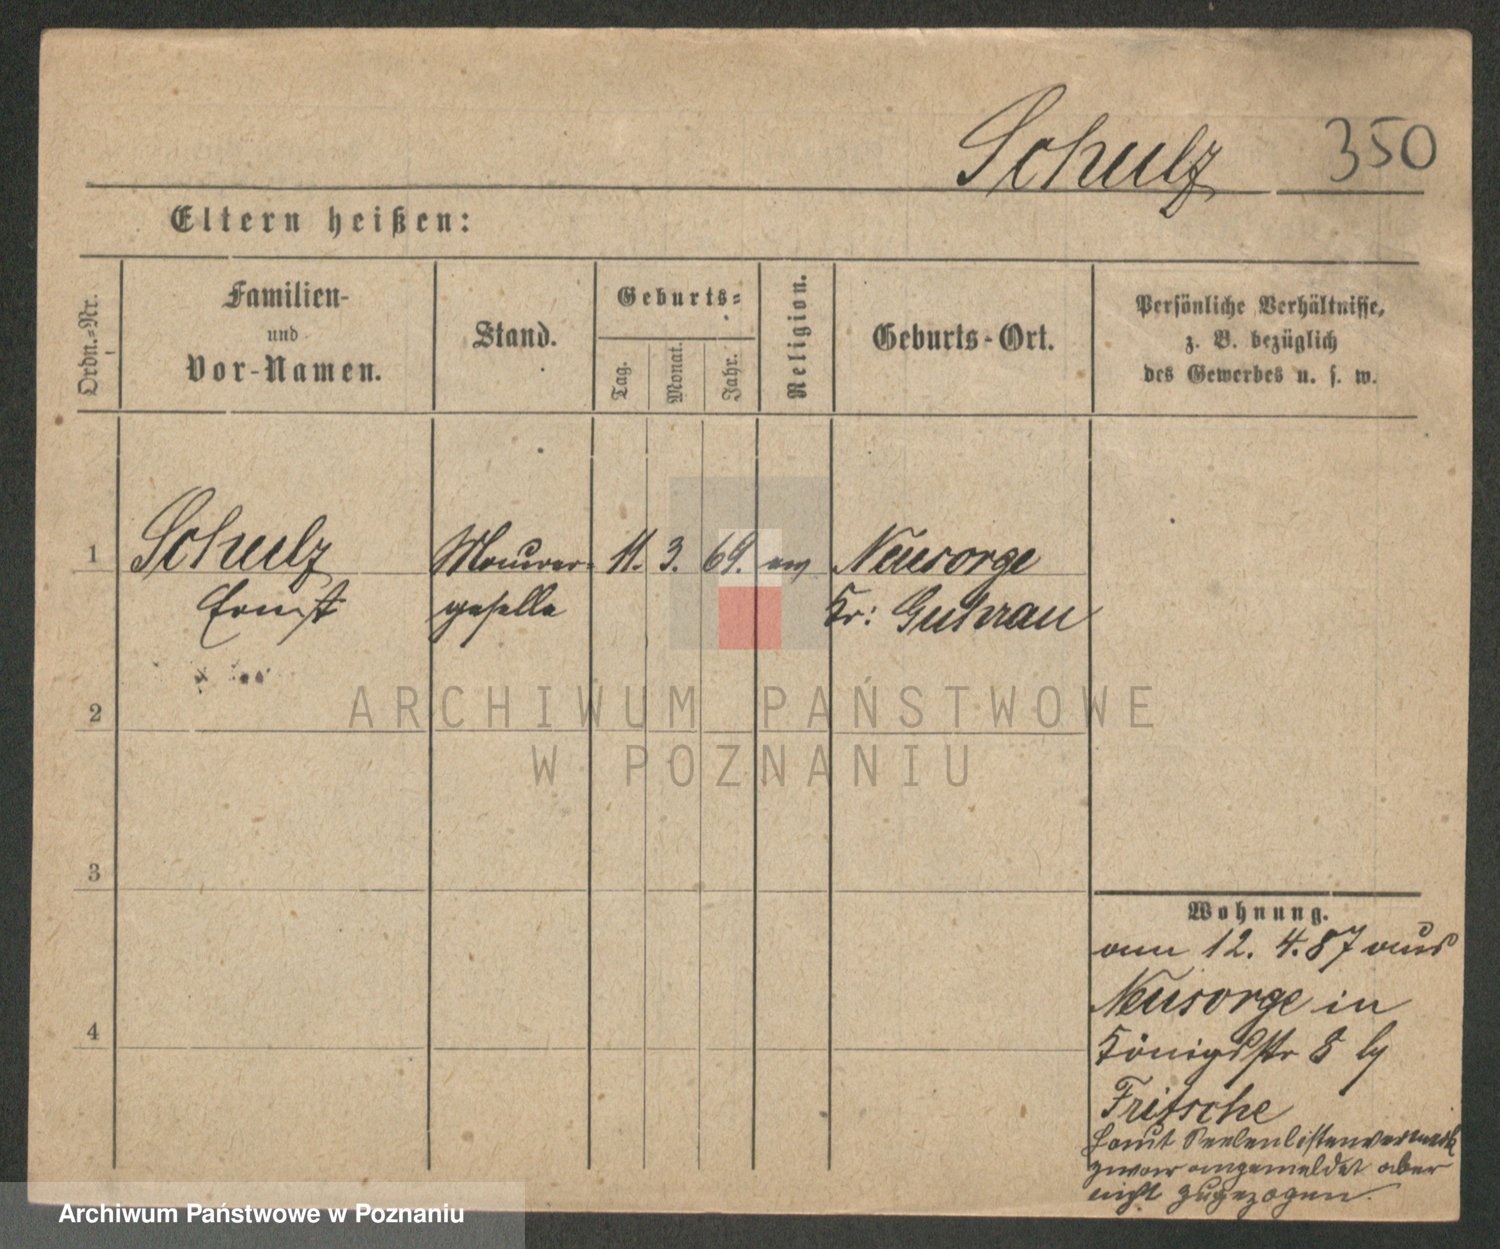 Schulz 350
Eltern heißen:
Ordn.-Nr.
Familien-
und
Vor-Namen.
Stand.
Geburts-
Tag.
Monat.
Jahr.
Religion.
Geburts-Ort.
Persönliche Verhältnisse,
z. B. bezüglich
des Gewerbes u. s. w.
1 Schulz Maurer- 11. 3. 69. ev Neusorge
Ernst geselle Kr: Guhrau
2
3
4
Wohnung.
am 12. 4. 87 aus
Neusorge in
Königsstr 8 bei
Fritsche
laut Seelenlistenvermerk
zwar angemeldet aber
nicht zugezogen.
ARCHIWUM PAŃSTWOWE
W POZNANIU
Archiwum Państwowe w Poznaniu